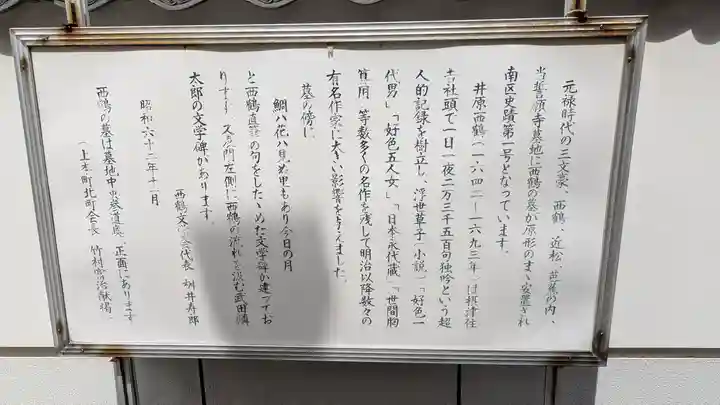 元禄時代の三文豪、西鶴、近松、芭蕉の内、
当誓願寺墓地に西鶴の墓が原形のまゝ安置され
南区史蹟第一号となっています。
井原西鶴(一六四二-一六九三年)は摂津住
吉社頭で一日一夜二万三千五百句独吟という超
人的記録を樹立し、浮世草子(小説)「好色一
代男」「好色五人女」「日本永代蔵」「世間胸
算用」等数多くの名作を残して明治以降数々の
有名作家に大きい影響を与えました。
墓の傍に
鯛ハ花ハ見ぬ里もあり今日の月
と西鶴直筆の句をしたゝめた文学碑が建ってお
ります。又寺門左側に西鶴の流れを汲む武田麟
太郎の文学碑があります。
西鶴文学会代表 井寿郎
昭和六十二年十一月
西鶴の墓は墓地中央墓道底、正面にあります
(上本町北町会長 竹村 治献場)